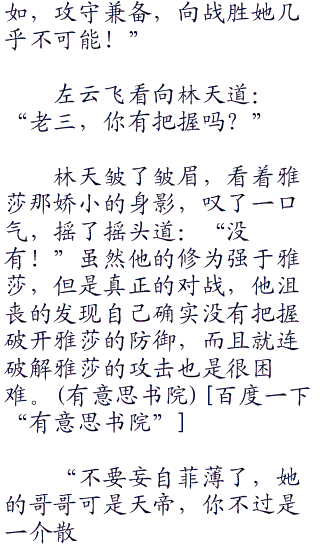 如，攻守兼备，向战胜她几
乎不可能！”
左云飞看向林天道：
“老三，你有把握吗？”
林天皱了皱眉，看着雅
莎那娇小的身影，叹了一口
气，摇了摇头道：“没
有！”虽然他的修为强于雅
莎，但是真正的对战，他沮
丧的发现自己确实没有把握
破开雅莎的防御，而且就连
破解雅莎的攻击也是很困
难。(有意思书院) [百度一下
“有意思书院”]
“不要妄自菲薄了，她
的哥哥可是天帝，你不过是
一介散